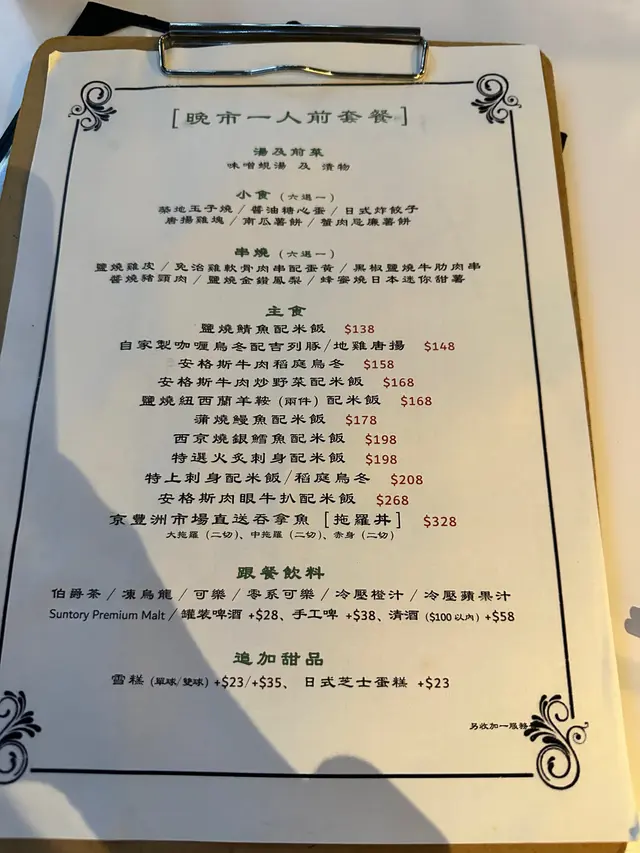 [晚市一人前套餐]
湯及前菜
味噌蜆湯 及 漬物
小食 (六選一)
築地玉子燒 / 醬油糖心蛋 / 日式炸餃子
唐揚雞塊 / 南瓜薯餅 / 蟹肉忌廉薯餅
串燒 (六選一)
鹽燒雞皮 / 免治雞軟骨肉串配蛋黃 / 黑椒鹽燒牛肋肉串
醬燒豬頸肉 / 鹽燒金鑽鳳梨 / 蜂蜜燒日本迷你甜薯
主食
鹽燒鯖魚配米飯 $138
自家製咖喱烏冬配吉列豚/地雞唐揚 $148
安格斯牛肉稻庭烏冬 $158
安格斯牛肉炒野菜配米飯 $168
鹽燒紐西蘭羊鞍 (兩件) 配米飯 $168
蒲燒鰻魚配米飯 $178
西京燒銀鱈魚配米飯 $198
特選火炙刺身配米飯 $198
特上刺身配米飯/稻庭烏冬 $208
安格斯肉眼牛扒配米飯 $268
京豐洲市場直送吞拿魚 [拖羅丼] $328
大拖羅 (二切)、中拖羅 (二切)、赤身 (二切)
跟餐飲料
伯爵茶 / 凍烏龍 / 可樂 / 零系可樂 / 冷壓橙汁 / 冷壓蘋果汁
Suntory Premium Malt / 罐裝啤酒 +$28、手工啤 +$38、清酒 ($100 以內) +$58
追加甜品
雪糕 (單球/雙球) +$23/+$35、 日式芝士蛋糕 +$23
另收加一服務